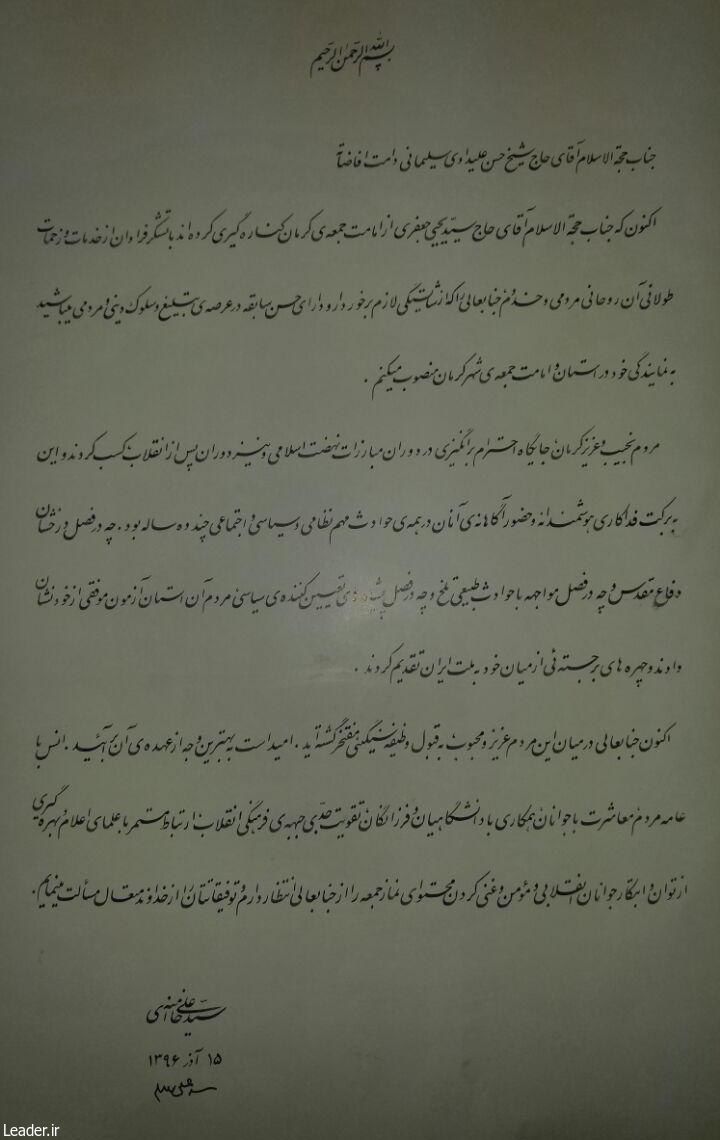 بسم الله الرحمن الرحیم
جناب حجة الاسلام آقای حاج شیخ حسن علیدادی سلیمانی دامت افاضاته
اکنون که جناب حجة الاسلام آقای حاج سید یحیی جعفری از امامت جمعه‌ی کرمان کناره‌گیری کرده‌اند با تشکر فراوان از خدمات و زحمات
طولانی آن روحانی مردمی و خدوم، جنابعالی را که از شایستگی لازم برخوردار و دارای حسن سابقه در عرصه‌ی تبلیغ و سلوک دینی و مردمی میباشید
به نمایندگی خود در استان و امامت جمعه‌ی شهر کرمان منصوب میکنم .
مردم نجیب و عزیز کرمان، جایگاه احترام برانگیزی در دوران مبارزات نهضت اسلامی و نیز دوران پس از انقلاب کسب کردند و این
به برکت فداکاری هوشمندانه و حضور آگاهانه‌ی آنان در همه‌ی حوادث مهم نظامی و سیاسی و اجتماعی چند ده ساله بود. چه در فصل درخشان
دفاع مقدس و چه در فصل مواجهه با حوادث طبیعی تلخ و چه در فصل تعیین کننده‌ی سیاسی، مردم آن استان آزمون موفقی از خود نشان
دادند و چهره‌های برجسته‌ئی از میان خود به ملت ایران تقدیم کردند .
اکنون جنابعالی در میان این مردم عزیز و محبوب به قبول وظیفه سنگینی مفتخر گشته‌اید. امید است به بهترین وجه از عهده‌ی آن برآئید. انس با
عامه مردم، معاشرت با جوانان، همکاری با دانشگاهیان و فرزانگان، تقویت جدی جبهه‌ی فرهنگی انقلاب، ارتباط مستمر با علمای اعلام، بهره‌گیری
از توان و ابتکار جوانان انقلابی و مؤمن و غنی کردن محتوای نماز جمعه را از جنابعالی انتظار دارم و توفیقاتتان را از خداوند متعال مسألت مینمایم.
سید علی خامنه‌ای
۱۵ آذر ۱۳۹۶
Leader.ir